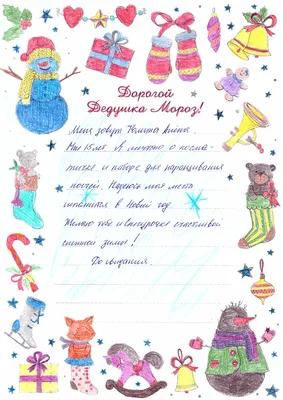 Дорогой
Дедушка Мороз!
Меня зовут
Мне 15 лет. Я мечтаю о косме-
тичке и наборе для наращивания
ногтей. Надеюсь моя мечта
исполнится в Новый год.
Желаю тебе и Снегурочке счастливой
снежной зимы!
До свидания.